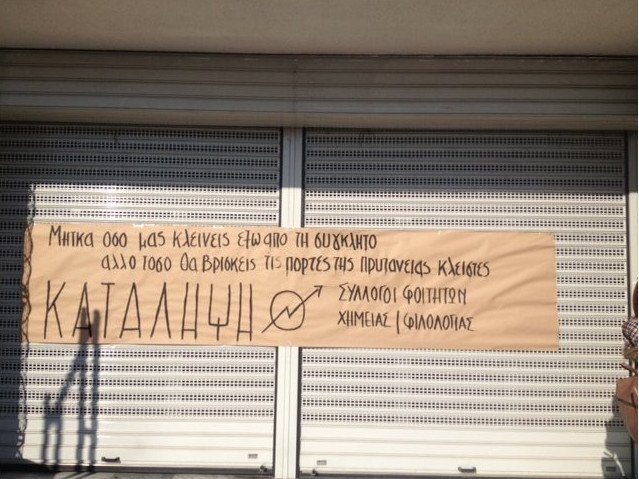 Μητκα οσο μας κλεινεις εξω απο τη συγκλητο
αλλο τοσο θα βρισκεις τις πορτες της πρυτανειας κλειστες
ΚΑΤΑΛΗΨΗ
ΣΥΛΛΟΓΟΙ ΦΟΙΤΗΤΩΝ
ΧΗΜΕΙΑΣ | ΦΙΛΟΛΟΓΙΑΣ